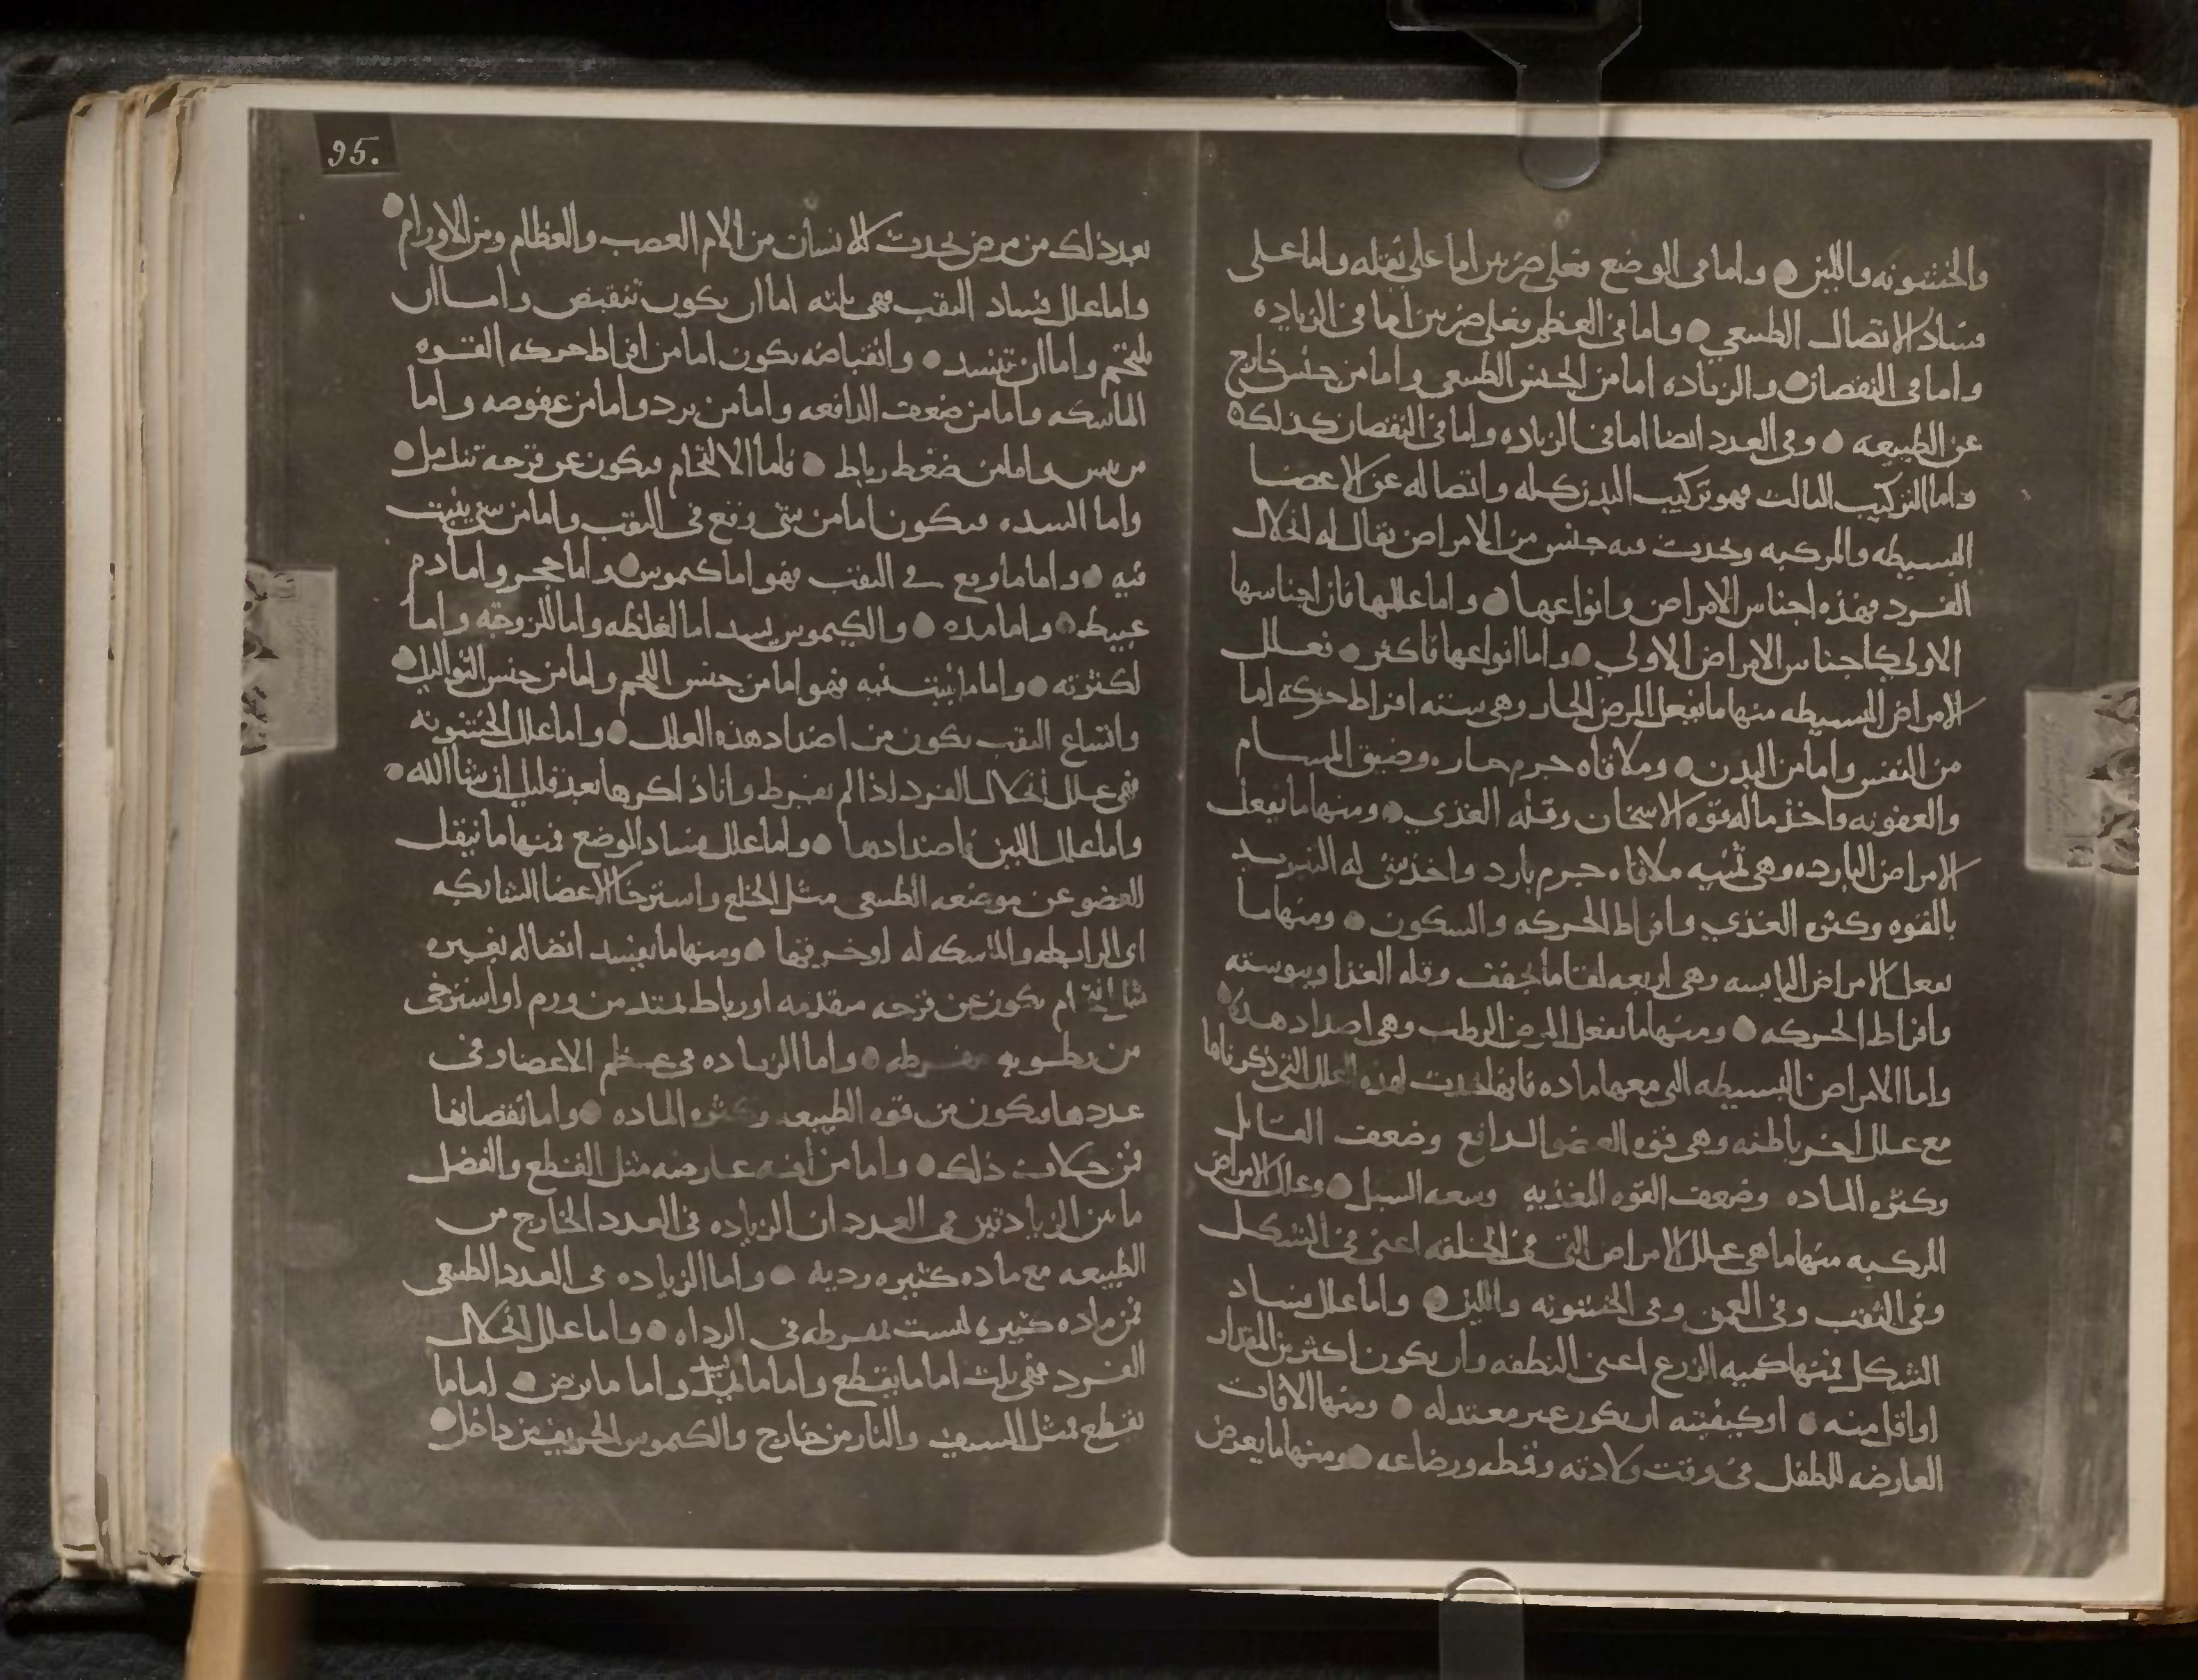 والخشونه واللين ● واما فى الوضع فعلى ضربين اما على نقله واما على
فساد الاتصال الطبيعي ● واما فى العظم فعلى ضربين اما فى الزياده
واما فى النقصان ● والزياده اما من الجنس الطبيعى واما من جنس خارج
عن الطبيعه ● وفى العدد ايضا اما فى الزياده واما فى النقصان كذلك ●
واما التركيب الثالث فهو تركيب البدن كله واتصاله عن الاعضا
البسيطه والمركبه ويحدث فيه جنس من الامراض يقال له انحلال
الفرد فهذه اجناس الامراض وانواعها ● واما عللها فان اجناسها
الاولى كاجناس الامراض الاولى ● واما انواعها فاكثر ● فعلل
الامراض البسيطه منها ما يفعل المرض الحار وهى سته افراط حركه اما
من النفس واما من البدن ● وملاقاه جرم حار وضيق المسام
والعفونه واخذ ماله قوه الاسخان وقله الغذى ● ومنها ما يفعل
الامراض البارده وهى ثمنيه ملاقاه جرم بارد واخذ شى له التبريد
بالقوه وكثره الغذى وافراط الحركه والسكون ● ومنها ما
يفعل الامراض اليابسه وهى اربعه لقا ما يجفف وقله الغذا ويبوسته
وافراط الحركه ● ومنها ما يفعل المرض الرطب وهى اضداد هذه ●
واما الامراض البسيطه التى معها ماده فانها تحدث لهذه العلل التى ذكرناها
مع علل اخر باطنه وهى قوه العضو الدافع وضعف القابل
وكثره الماده وضعف القوه المغذيه وسعه السبل ● وعلل الامراض
المركبه منها ما هى علل الامراض التى فى الخلقه اعنى فى الشكل
وفى الثقب وفى العمق وفى الخشونه واللين ● واما علل فساد
الشكل فمنها كميه الزرع اعنى النطفه وان يكون اكثر من المقدار
او اقل منه ● او كيفيته ان يكون غير معتدله ● ومنها الافات
العارضه للطفل فى وقت ولادته وقمطه ورضاعه ● ومنها ما يعرض
95.
بعد ذلك من مرض يحدث للانسان من الام العصب والعظام ومن الاورام ●
واما علل فساد الثقب فهى ثلثه اما ان يكون تنقبض واما ان
تلتحم واما ان تنسد ● وانقباضه يكون اما من افراط حركه القوه
الماسكه واما من ضعف الدافعه واما من برد واما من عفوصه واما
من يبس واما من ضغط رباط ● فاما الالتحام فيكون عن قرحه تندمل ●
واما السده فيكون اما من شى وقع فى الثقب واما من شى ينبت
فيه ● واما ما وقع فى الثقب فهو اما كيموس ● واما حجر واما دم
عبيط ● واما مده ● والكيموس يسد اما لغلظه واما للزوجته واما
لكثرته ● واما ما ينبت فيه فهو اما من جنس اللحم واما من جنس الثواليل ●
واتساع الثقب يكون من اضداد هذه العلل ● واما علل الخشونه
فهى علل انحلال الفرد اذا لم يفرط وانا ذاكرها بعد قليل ان شا الله ●
واما علل اللين فاضدادها ● واما علل فساد الوضع فمنها ما ينقل
العضو عن موضعه الطبيعى مثل الخلع واسترخا الاعضا الشابكه
اى الرابطه والماسكه له او خرقها ● ومنها ما يفسد اتصاله بغيره
ام يكون عن قرحه متقدمه او رباط يمتد من ورم او استرخى
من رطوبه مفرطه ● واما الزياده فى عظم الاعضا وفى
عددها فيكون من قوه الطبيعه وكثره الماده ● واما نقصانها
فمن خلاف ذلك ● واما من افه عارضه مثل القطع والفصل
ما بين الزيادتين فى العدد ان الزياده فى العدد الخارج من
الطبيعه مع ماده كثيره رديه ● واما الزياده فى العدد الطبيعى
فمن ماده كثيره ليست بمفرطه فى الرداه ● واما علل انحلال
الفرد فهى ثلث اما ما يقطع واما ما يمدد واما ما يرض ● اما ما
يقطع فمثل السيف والنار من خارج والكيموس الحريف من داخل ●